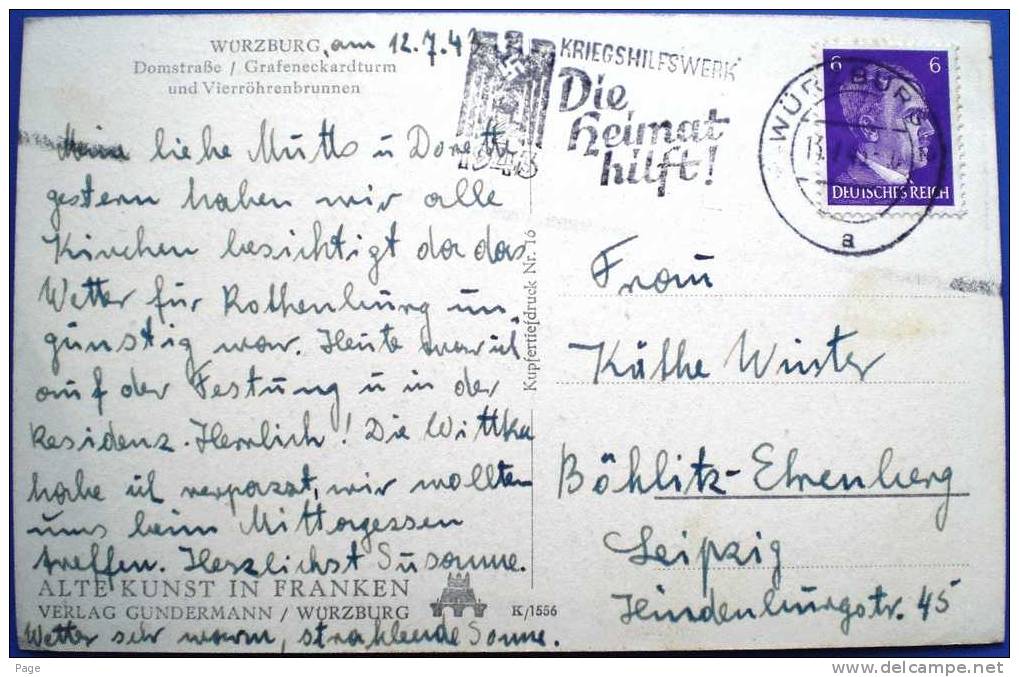 WÜRZBURG, am 12.7.43
Domstraße / Grafeneckardturm
und Vierröhrenbrunnen
Meine liebe Mutti u Dorette
gestern haben wir alle
Kirchen besichtigt da das
Wetter für Rothenburg un,
günstig war. Heute war ich
auf der Festung u in der
Residenz. Herrlich! Die Wittka
habe ich verpasst, wir wollten
uns beim Mittagessen
treffen. Herzlichst Susanne.
ALTE KUNST IN FRANKEN
VERLAG GUNDERMANN / WÜRZBURG
K/1556
Wetter sehr warm, strahlende Sonne.
Kupfertiefdruck Nr. 16
KRIEGSHILFSWERK
Die
Heimat
hilft!
1943
WÜRZBURG
a
6 6
DEUTSCHES REICH
Frau
Käthe Winter
Böhlitz-Ehrenberg
Leipzig
Hindenburgstr. 45
Page
www.delcampe.net